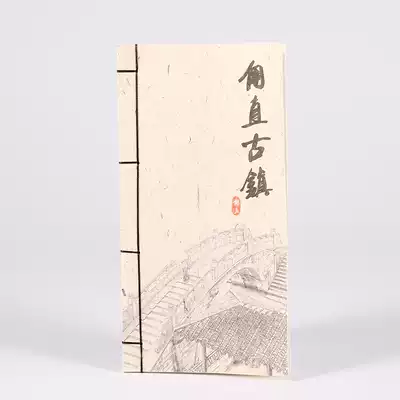 甪直古鎮